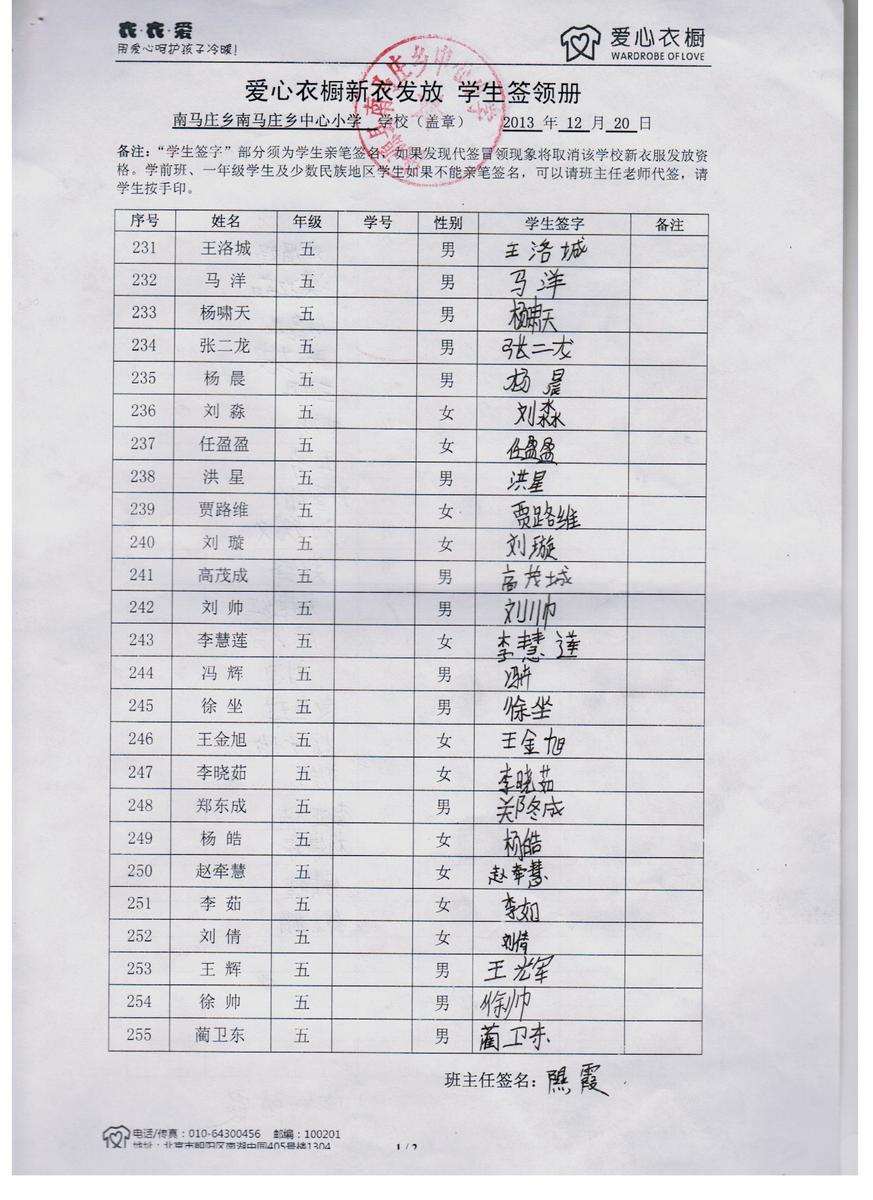 衣·衣·爱
用爱心呵护孩子冷暖!
爱心衣橱
WARDROBE OF LOVE
爱心衣橱新衣发放 学生签领册
南马庄乡南马庄乡中心小学 学校（盖章） 2013 年 12 月 20 日
备注：“学生签字”部分须为学生亲笔签名，如果发现代签冒领现象将取消该学校新衣服发放资
格。学前班、一年级学生及少数民族地区学生如果不能亲笔签名，可以请班主任老师代签，请
学生按手印。
序号 姓名 年级 学号 性别 学生签字 备注
231 王洛城 五 男 王洛城
232 马 洋 五 男 马洋
233 杨啸天 五 男 杨啸天
234 张二龙 五 男 张二龙
235 杨 晨 五 男 杨晨
236 刘 淼 五 女 刘淼
237 任盈盈 五 女 任盈盈
238 洪 星 五 男 洪星
239 贾路维 五 女 贾路维
240 刘 璇 五 女 刘璇
241 高茂成 五 男 高茂城
242 刘 帅 五 男 刘帅
243 李慧莲 五 女 李慧莲
244 冯 辉 五 男
245 徐 坐 五 男 徐坐
246 王金旭 五 女 王金旭
247 李晓茹 五 女 李晓茹
248 郑东成 五 男
249 杨 皓 五 女 杨皓
250 赵牵慧 五 女 赵牵慧
251 李 茹 五 女 李如
252 刘 倩 五 女 刘倩
253 王 辉 五 男 王光军
254 徐 帅 五 男 徐帅
255 蔺卫东 五 男 蔺卫东
班主任签名：
电话/传真：010-64300456 邮编：100201
地址：北京市朝阳区南湖中园405号楼1304
1 / 2